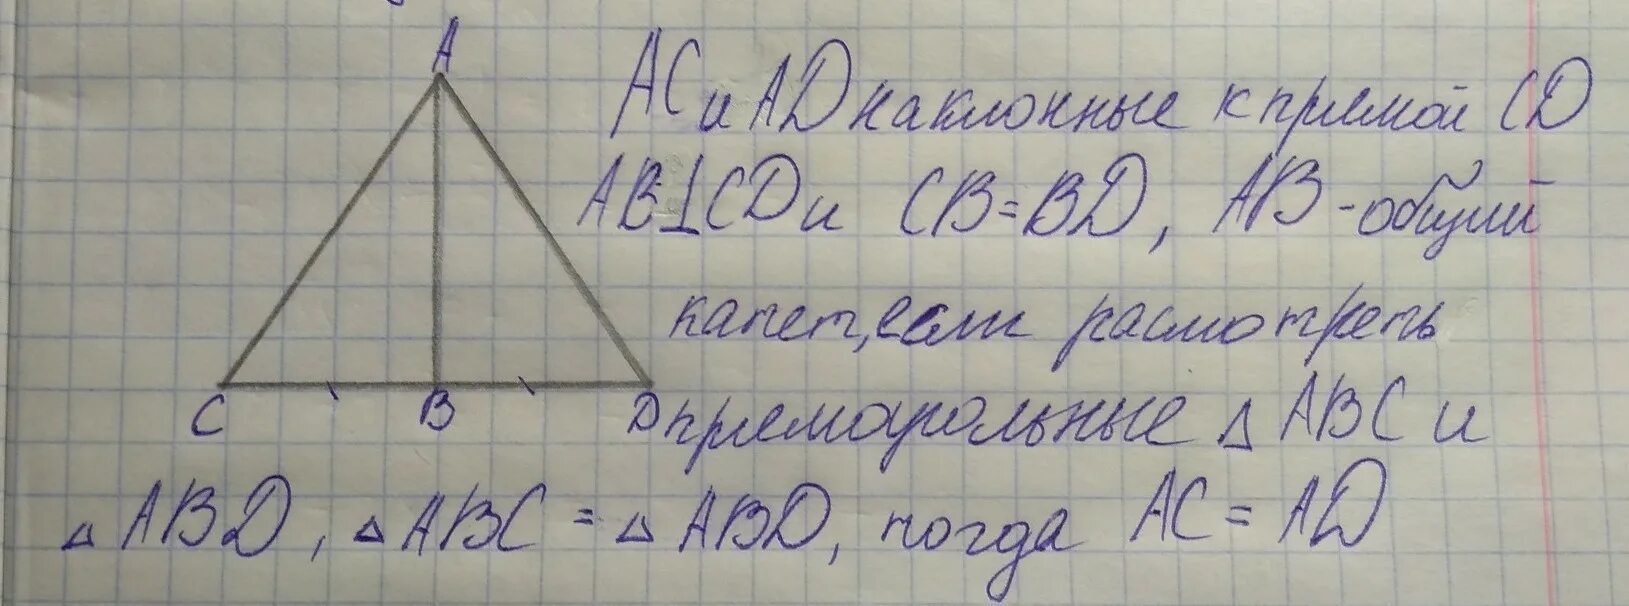 A
AC и AD наклонные к прямой CD
AB⊥CD и CB=BD, AB-общий
катет, если расмотреть
C B D
прямоугольные △ ABC и
△ ABD, △ ABC = △ ABD, тогда AC = AD